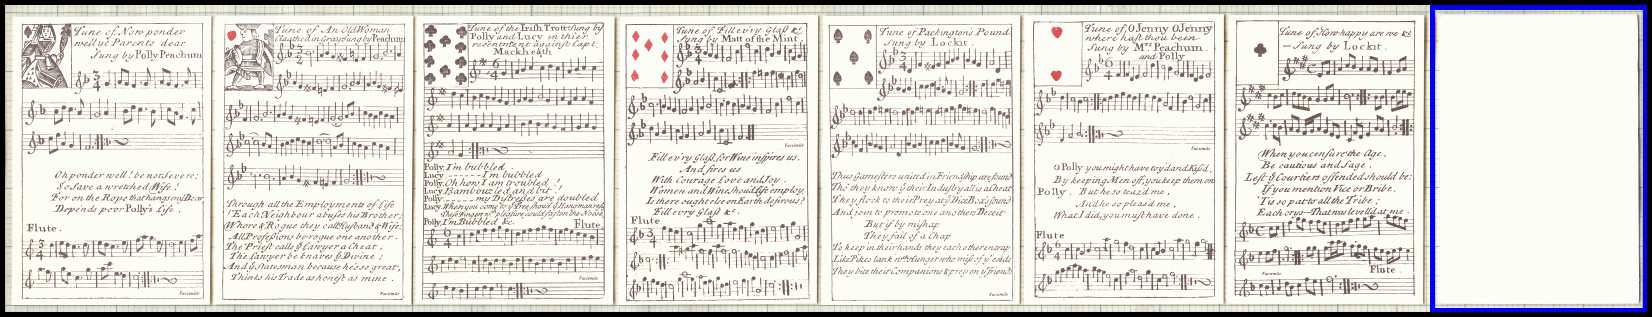 Tune of Now ponder
well ye Parents dear
Sung by Polly Peachum
Oh ponder well! be not severe;
So save a wretched Wife!
For on the Rope that hangs my Dear
Depends poor Polly's Life.
Flute.
Facsimile
Tune of An Old Woman
cloathed in Gray sung by Peachum
Through all the Employments of Life
Each Neighbour abuses his Brother;
Whore & Rogue they call Husband & Wife;
All Professions be-rogue one another.
The Priest calls ye Lawyer a Cheat,
The Lawyer be knaves ye Divine;
And ye Statesman because he's so great,
Thinks his Trade as honest as mine.
Facsimile
Tune of the Irish Trott Sung by
Polly and Lucy in their
resentment against Capt:
Mackheath
Polly. I'm bubbled.
Lucy. I'm bubbled
Polly. Oh how I am troubled!
Lucy. Bambouzled and bit!
Polly. my Distresses are doubled
Lucy. When you come to ye Tree, should ye Hangman refuse
These Fingers wth pleasure could fasten the Noose
Polly. I'm Bubbled &c.
Flute.
Facsimile
Tune of Fill ev'ry Glass &c
Sung by Matt of the Mint.
Facsimile
Fill ev'ry Glass, for Wine inspires us.
And fires us
With Courage Love and Joy.
Women and Wine should Life employ,
Is there ought else on Earth desirous?
Fill ev'ry Glass &c.
Flute
Tune of Packington's Pound
Sung by Lockit.
Thus Gamesters united in Friendship are found
Tho' they know yt their Industry all is a cheat
They flock to their Prey at ye Dice Box's sound
And join to promote one anothers Deceit
But if by mishap
They fail of a Chap
To keep in their hands they each other entrap
Like Pikes lank wth hunger who miss of yr ends
They bite their Companions & prey on yr friends
Facsimile
Tune of, O Jenny O Jenny
where hast thou been
Sung by Mrs. Peachum.
and Polly
Facsimile
O Polly you might have toy'd and Kiss'd,
By keeping Men off, you keep them on
Polly. But he so teaz'd me,
And he so pleas'd me,
What I did, you must have done.
Flute
Tune of How happy are we &c
Sung by Lockit.
When you censure the Age,
Be cautious and Sage.
Left ye Courtiers offended should be:
If you mention Vice or Bribe,
'Tis so pat to all the Tribe;
Each crys — That was levell'd at me.
Flute.
Facsimile